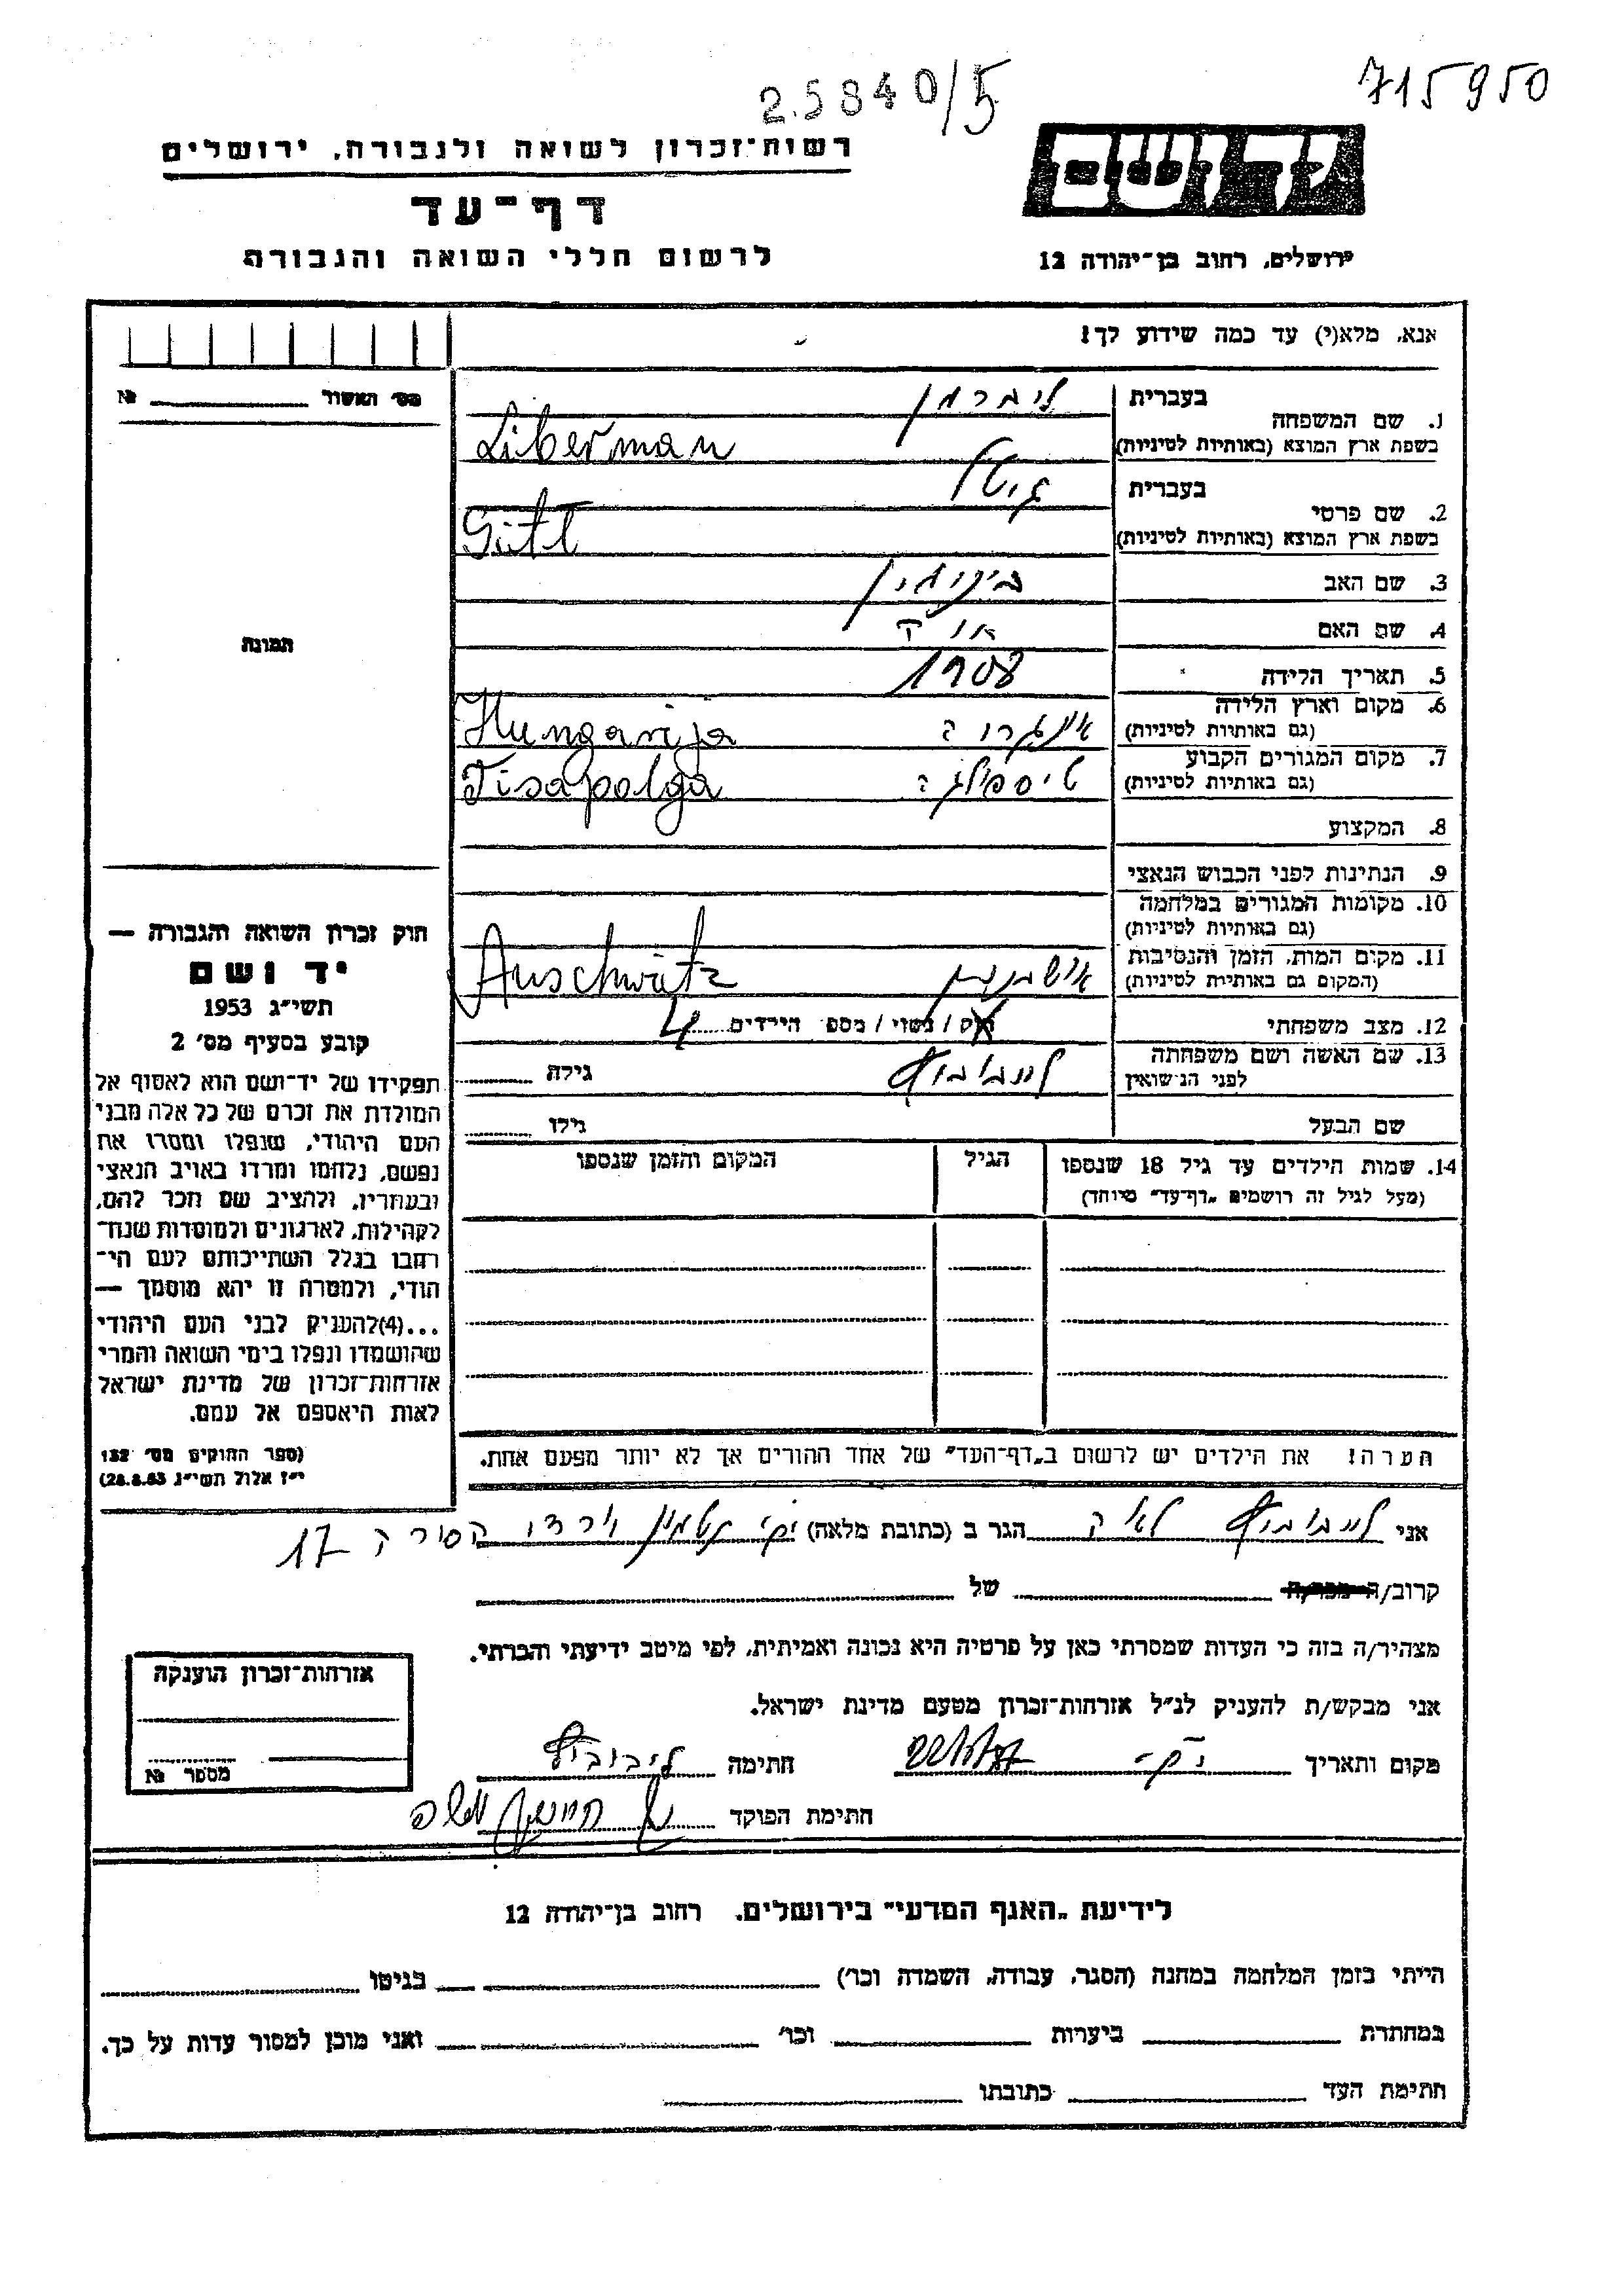 25840/5
715950
יד ושם
רשות־זכרון לשואה ולגבורה, ירושלים
דף־עד
לרשום חללי השואה והגבורה
ירושלים, רחוב בן־יהודה 12
אנא, מלא(י) עד כמה שידוע לך!
מס׳ האשור № ______
תמונה
1. שם המשפחה
בעברית ליברמן
בשפת ארץ המוצא (באותיות לטיניות) Liberman
2. שם פרטי
בעברית גיטל
בשפת ארץ המוצא (באותיות לטיניות) Gitl
3. שם האב בינימין
4. שם האם
5. תאריך הלידה 1908
6. מקום וארץ הלידה
(גם באותיות לטיניות) Hungarija
7. מקום המגורים הקבוע
(גם באותיות לטיניות) Tisapolga
8. המקצוע
9. הנתינות לפני הכבוש הנאצי
10. מקומות המגורים במלחמה
(גם באותיות לטיניות)
11. מקום המות, הזמן והנסיבות
(המקום גם באותיות לטיניות) Auschwitz
12. מצב משפחתי רווק / נשוי / מספר הילדים 4
13. שם האשה ושם משפחתה
לפני הנשואין לייבוביץ גילה
שם הבעל גילו
14. שמות הילדים עד גיל 18 שנספו
(מעל לגיל זה רושמים „דף־עד״ מיוחד)
הגיל
המקום והזמן שנספו
הערה! את הילדים יש לרשום ב„דף־העד״ של אחד ההורים אך לא יותר מפעם אחת.
חוק זכרון השואה והגבורה —
יד ושם
תשי״ג 1953
קובע בסעיף מס׳ 2
תפקידו של יד־ושם הוא לאסוף אל
המולדת את זכרם של כל אלה מבני
העם היהודי, שנפלו ומסרו את
נפשם, נלחמו ומרדו באויב הנאצי
ובעוזריו, ולהציב שם וזכר להם,
לקהילות, לארגונים ולמוסדות שנח־
רבו בגלל השתייכותם לעם הי־
הודי, ולמטרה זו יהא מוסמך —
...(4)להעניק לבני העם היהודי
שהושמדו ונפלו בימי השואה והמרי
אזרחות־זכרון של מדינת ישראל
לאות היאספם אל עמם.
(ספר החוקים מס׳ 132
י״ז אלול תשי״ג 28.8.53)
אני לייבוביץ לאה הגר ב (כתובת מלאה) 17
קרוב/ה מכר/ה של
מצהיר/ה בזה כי העדות שמסרתי כאן על פרטיה היא נכונה ואמיתית, לפי מיטב ידיעתי והכרתי.
אני מבקש/ת להעניק לנ״ל אזרחות־זכרון מטעם מדינת ישראל.
מקום ותאריך חתימה ליבוביץ
חתימת הפוקד
אזרחות־זכרון הוענקה
מספר №
לידיעת „האגף המדעי״ בירושלים, רחוב בן־יהודה 12
הייתי בזמן המלחמה במחנה (הסגר, עבודה, השמדה וכו׳) בגיטו
במחתרת ביערות וכו׳ ואני מוכן למסור עדות על כך.
חתימת העד כתובתו